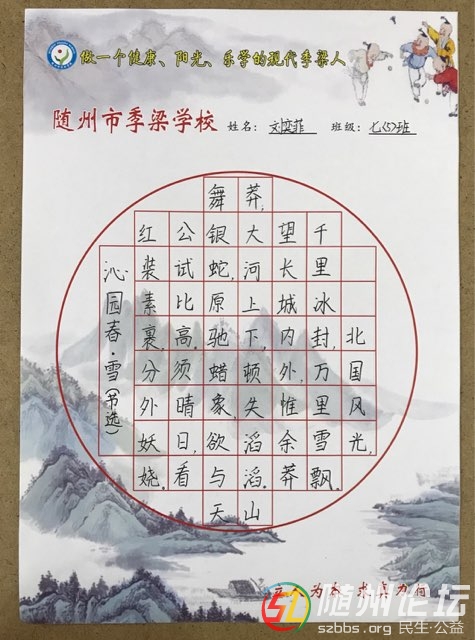 做一个健康、阳光、乐学的现代季梁人
随州市季梁学校 姓名：刘奕菲 班级：七(5)班
沁园春·雪(节选)
北国风光,
千里冰封,万里雪飘。
望长城内外,惟余莽
莽,大河上下,顿失滔滔。山
舞银蛇,原驰蜡象,欲与天
公试比高。须晴日,看
红装素裹,分外妖娆。
五个为
随州论坛
szbbs.org 民生·公益